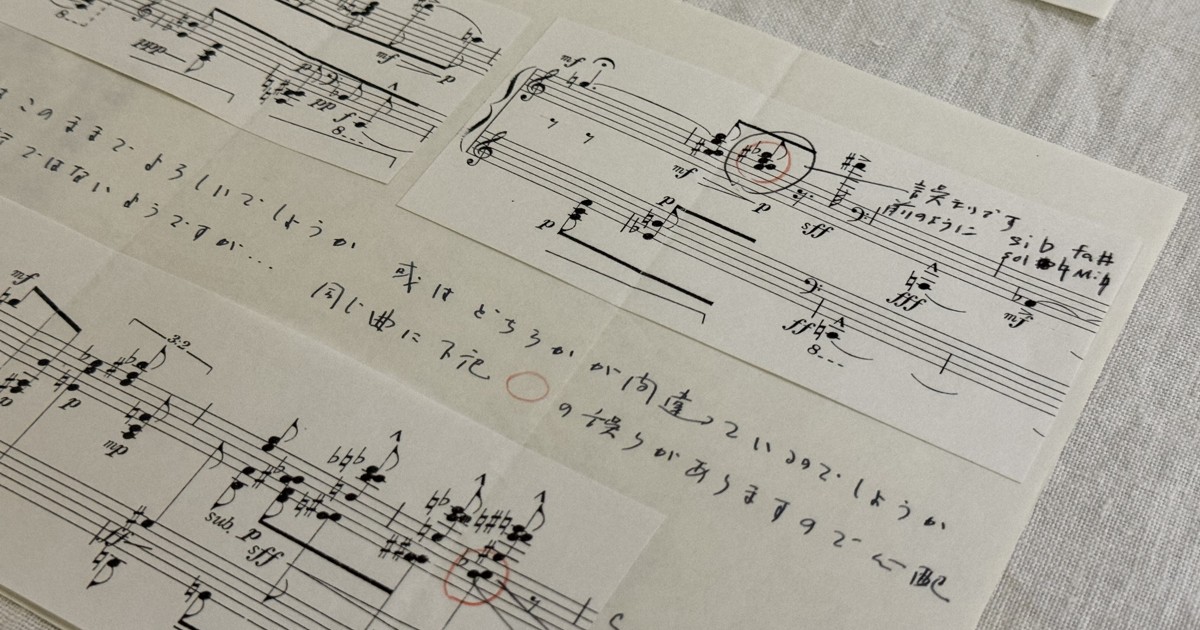 mf
8...
ppp
mf
p
p
pp
f
8...
mf
mf
p
sff
誤まりです
前のように sib fa#
sol ♮ Mi♮
p
p
fff
mf
fff
8...
このままでよろしいでしょうか
ではないようですが...
或はどちらかが間違っているのでしょうか
同じ曲に下記 の誤りがありますので心配
mf
3:2
p
p
mp
sub. p
sff
sff